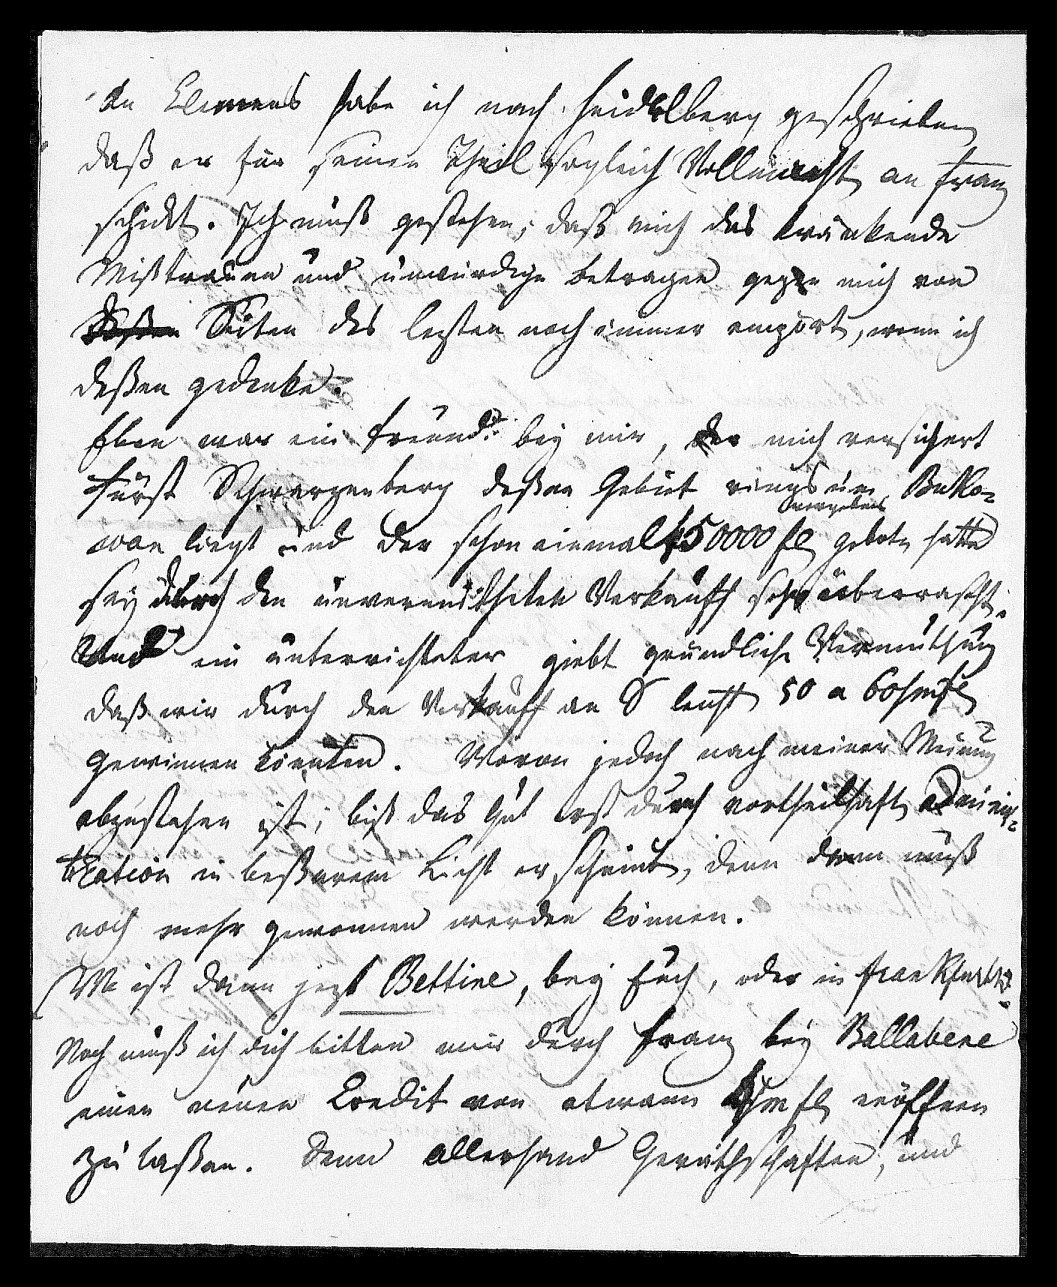 An Clemens habe ich nach Heidelberg geschrieben
daß er für seinen Theil sogleich Vollmacht an Franz
schickt. Ich muß gestehen, daß mich das kränkende
Mißtrauen und unwürdige betragen gegen mich von
Seiten des lezten noch immer emport, wenn ich
deßen gedenke.
Eben war ein Freund bey mir, der mich versichert
Fürst Schwarzenberg deßen Gebiet rings um Buko-
wan liegt und der schon einmal 450000 fl geboten hatte
sey durch den unvermutheten Verkauff sehr überrascht.
Und ein unterrichteter giebt gründliche Vermuthung
daß wir durch den Verkauff an S leicht 50 a 60
gewinnen könnten. Wovon jedoch nach meiner Meinung
abzustehen ist, biß das Gut erst durch vortheilhafte adminis-
tration in beßerem Licht erscheint, denn dann muß
noch mehr gewonnen werden können.
Wo ist denn jezt Bettine, bey Euch, oder in Frankfurth?
Noch muß ich dich bitten mir durch Franz bey Ballabene
einen neuen Credit von etwann fl eröffnen
zu laßen. Denn allerhand Geräthschaften, und